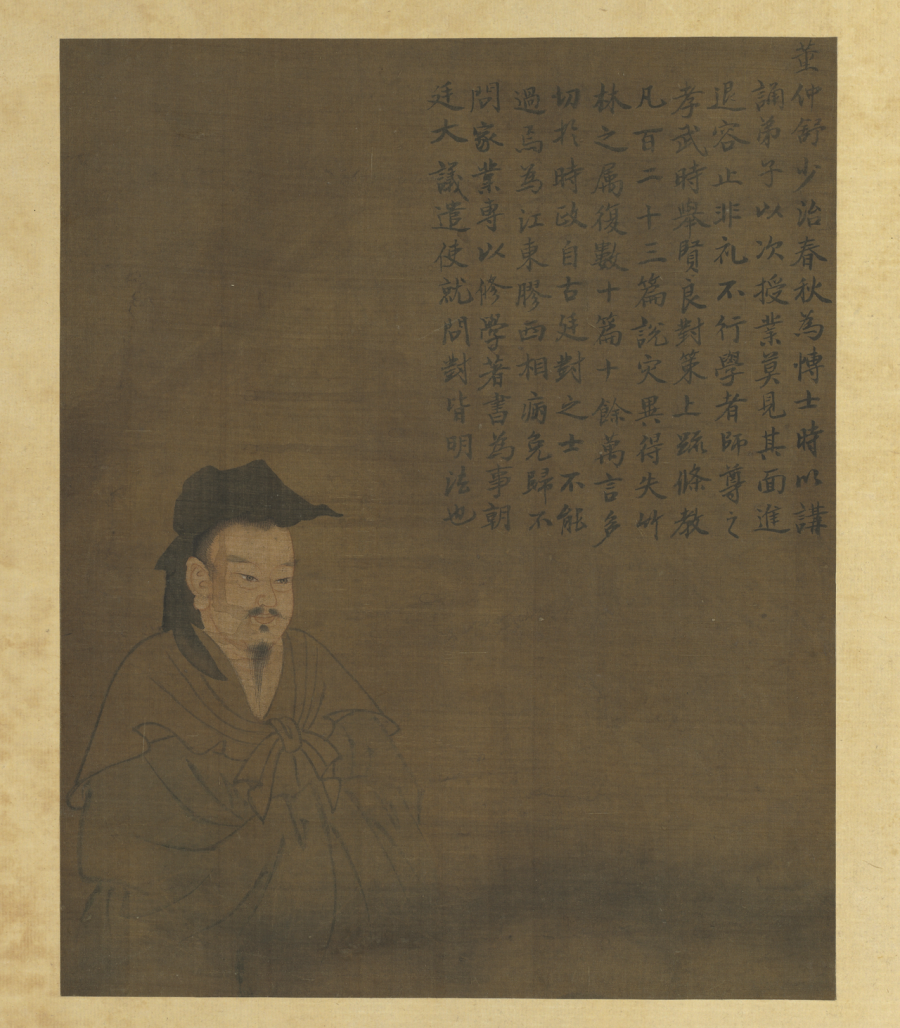 董仲舒少治春秋為博士時以講
誦弟子以次授業莫見其面進
退容止非礼不行學者師尊之
孝武時舉賢良對策上疏條教
凡百二十三篇說灾異得失竹
林之属復數十篇十餘萬言多
切於時政自古廷對之士不能
過焉為江東膠西相病免歸不
問家業專以修學著書為事朝
廷大議遣使就問對皆明法也